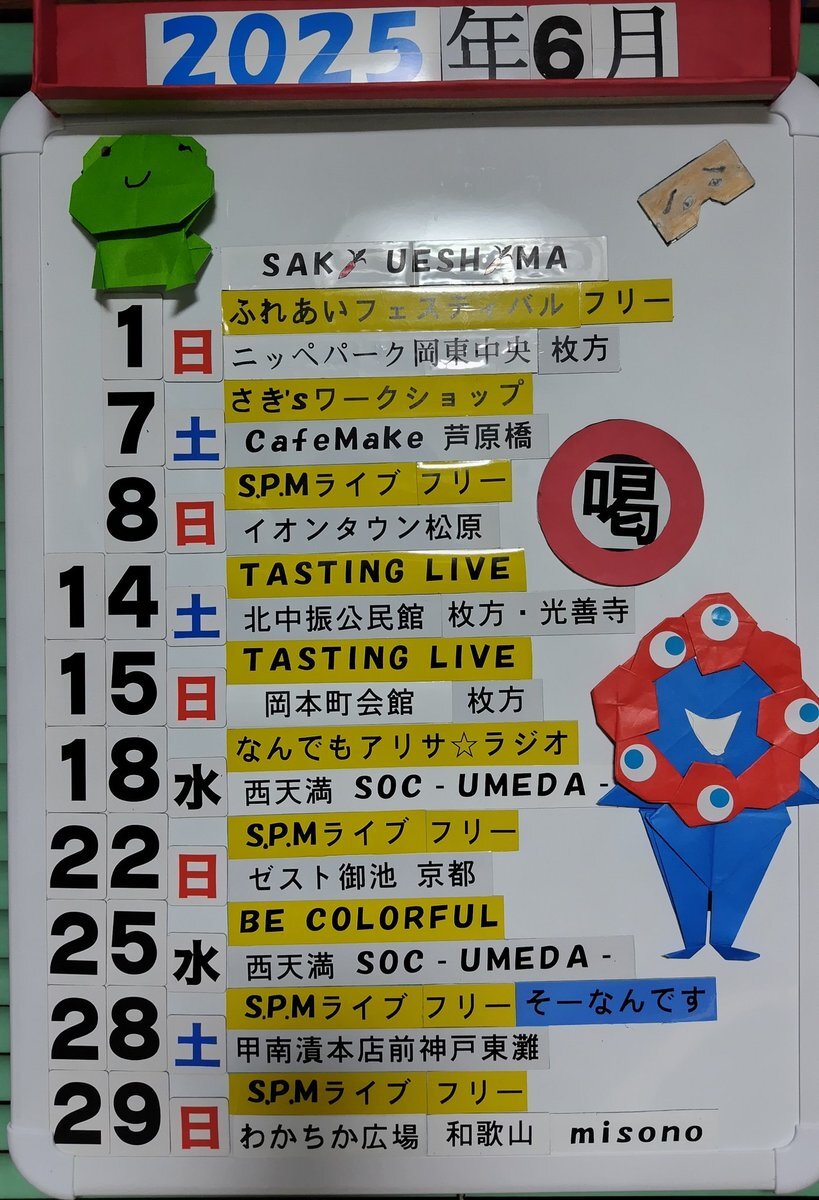 2025年6月
SAKI UESHIMA
1 日 ふれあいフェスティバル フリー
ニッペパーク岡東中央 枚方
7 土 さき'sワークショップ
CafeMaKe 芦原橋
8 日 S.P.Mライブ フリー
イオンタウン松原
喝
14 土 TASTING LIVE
北中振公民館 枚方・光善寺
15 日 TASTING LIVE
岡本町会館 枚方
18 水 なんでもアリサ☆ラジオ
西天満 SOC - UMEDA -
22 日 S.P.Mライブ フリー
ゼスト御池 京都
25 水 BE COLORFUL
西天満 SOC - UMEDA -
28 土 S.P.Mライブ フリー そーなんです
甲南漬本店前神戸東灘
29 日 S.P.Mライブ フリー
わかちか広場 和歌山 misono